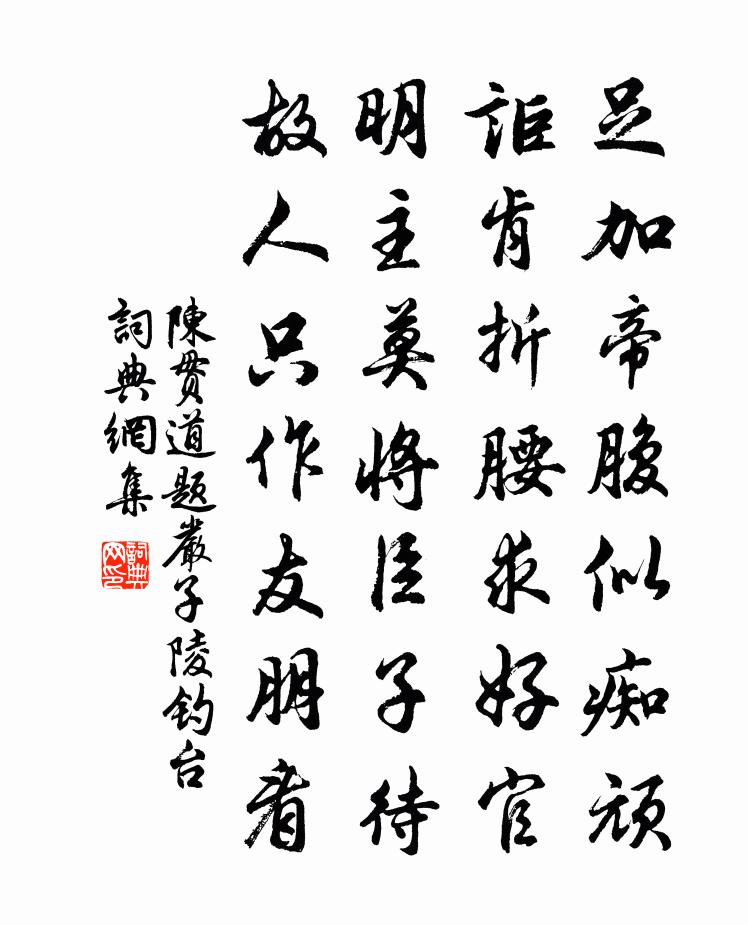 足加帝腹似痴顽
詎肯折腰求好官
明主莫將臣子待
故人只作友朋看
陳貫道题嚴子陵钓台
詞典網集
詞典网印